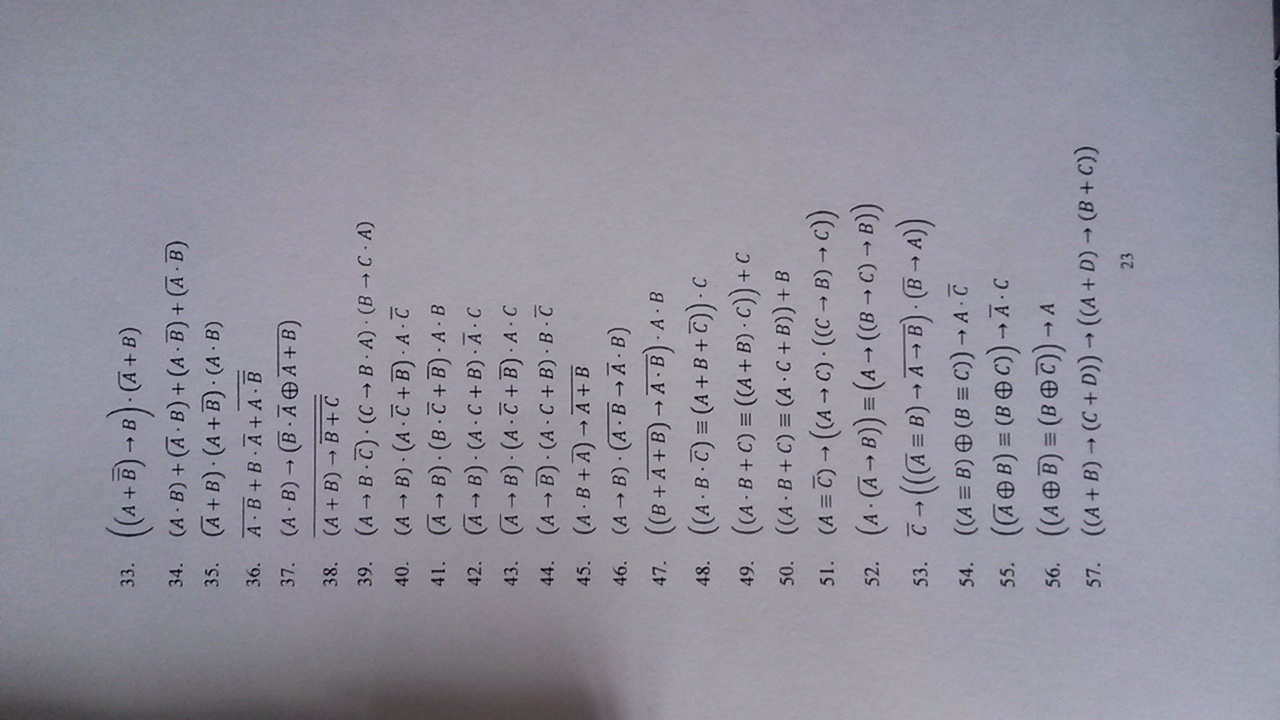 33. ((A + B̅) → B) · (A̅ + B)
34. (A · B) + (A̅ · B) + (A · B̅) + (A̅ · B̅)
35. (A̅ + B) · (A + B̅) · (A · B)
36. \overline{A · \overline{B} + B · \overline{A} + A · \overline{\overline{B}}}
37. (A · B) → (B̅ · A̅ ⊕ \overline{A + B})
38. \overline{(A + B) → \overline{\overline{B + C}}}
39. (A → B · C̅) · (C → B · A) · (B → C · A)
40. (A → B) · (A · C̅ + B̅) · A · C̅
41. (A̅ → B) · (B · C̅ + B̅) · A · B
42. (A̅ → B) · (A · C + B) · A̅ · C
43. (A̅ → B) · (A · C̅ + B̅) · A · C
44. (A → B̅) · (A · C + B) · B · C̅
45. (A · B + A̅) → \overline{\overline{A + B}}
46. (A → B) · (\overline{A · B} → A̅ · B)
47. ((B + \overline{A + B}) → \overline{A · B}) · A · B
48. ((A · B · C̅) ≡ (A + B + C̅)) · C
49. ((A · B + C) ≡ ((A + B) · C)) + C
50. ((A · B + C) ≡ (A · C + B)) + B
51. (A ≡ C̅) → ((A → C) · ((C → B) → C))
52. (A · (A̅ → B)) ≡ (A → ((B → C) → B))
53. C̅ → (((A̅ ≡ B) → \overline{A → B}) · (B̅ → A))
54. ((A ≡ B) ⊕ (B ≡ C)) → A · C̅
55. ((A̅ ⊕ B) ≡ (B ⊕ C)) → A̅ · C
56. ((A ⊕ B̅) ≡ (B ⊕ C̅)) → A
57. ((A + B) → (C + D)) → ((A + D) → (B + C))
23